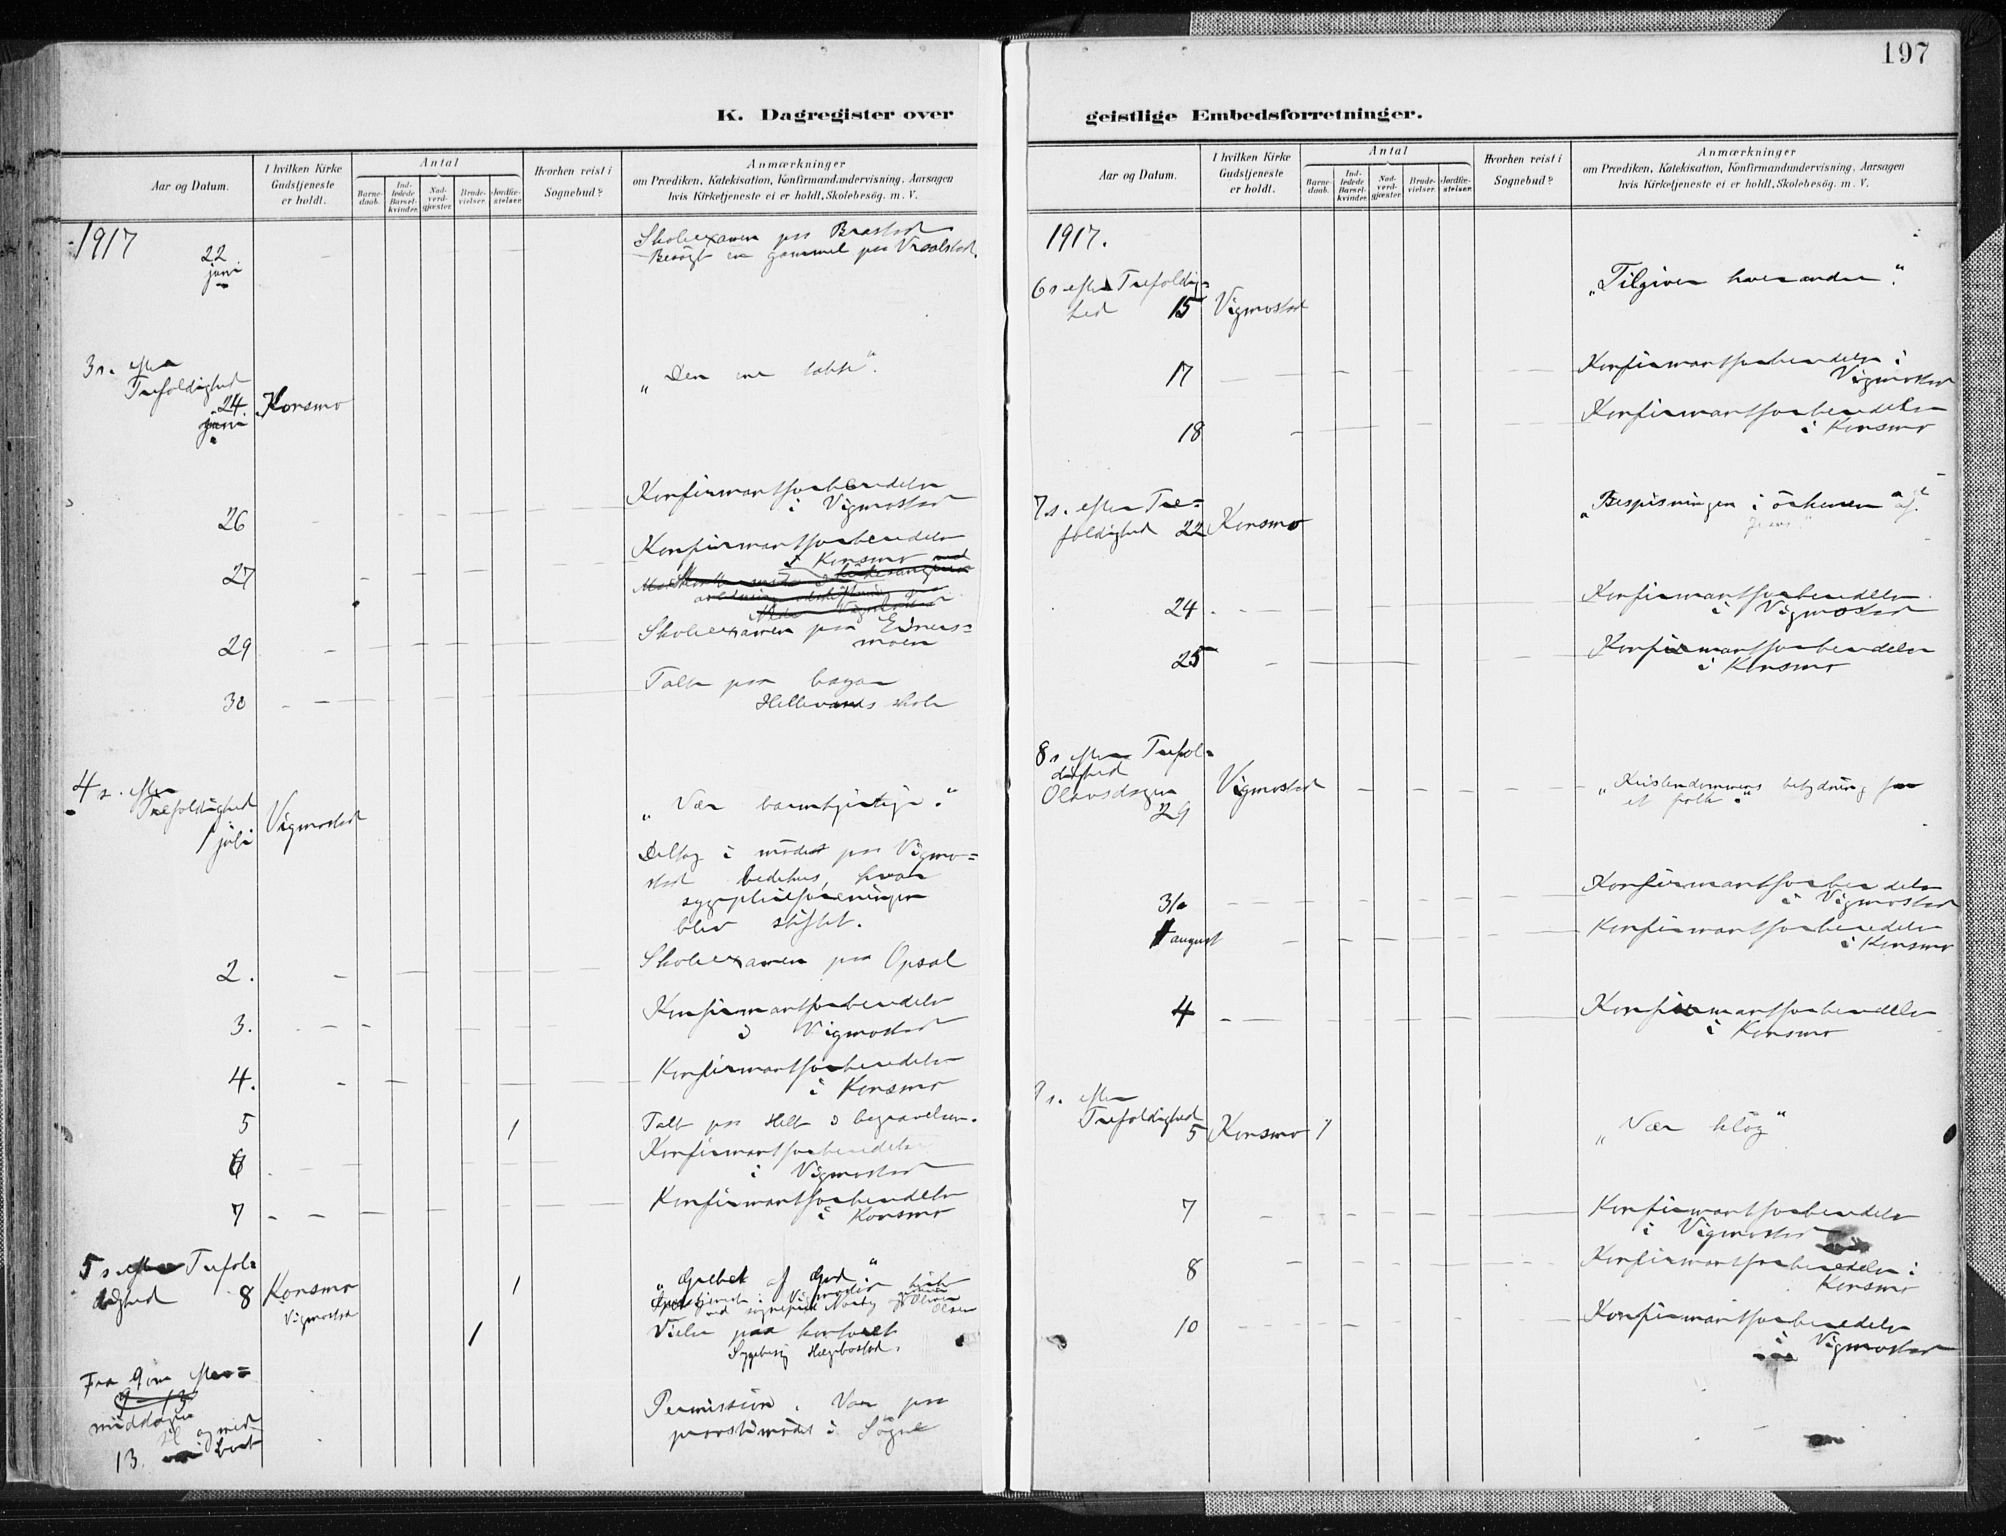 197
K. Dagregister over
geistlige Embedsforretninger.
Aar og Datum.
I hvilken Kirke
Gudstjeneste
er holdt.
Antal
Barne-
daab.
Ind-
ledede
Barsel-
kvinder.
Nad-
verd-
gjæster.
Brude-
vielser.
Jordfæ-
stelser.
Hvorhen reist i
Sognebud?
Anmærkninger
om Prædiken, Katekisation, Konfirmandundervisning, Aarsagen
hvis Kirketjeneste ei er holdt, Skolebesög. m. V.
1917
22
juni
Skoleexamen paa Brastad
Besögt en gammel paa
3 s. efter
Trefoldighed
24.
juni
Konsmo
„Den ene tabte“.
26
Konfirmantforberedelse
i Vigmostad
27
Konfirmantforberedelse
i Konsmo
29
Skoleexamen paa Eines=
moen
30
Talte paa
Hellevands skole
4 s. efter
Trefoldighed
1 juli
Vigmostad
„Vær barmhjertige“.
Deltog i mödet paa Vigmo=
stad bedehus, hvor
sygepleieforeningen
blev stiftet.
2.
Skoleexamen paa Opsal
3.
Konfirmantforberedelse
i Vigmostad
4.
Konfirmantforberedelse
i Konsmo
5
1
Talte paa Helle i begravelse.
6
Konfirmantforberedelse
i Vigmostad
7
Konfirmantforberedelse
i Konsmo
5 s. efter Trefol=
dighed 8
Konsmo
Vigmostad
1
„Grebet af Gud“
i Vigmostad kirke
ved sognepræst
1
Vielse paa kontoret
Sygebesög Hægebostad.
Fra 9de efter=
middagen
til og med
13.
Permission. Var paa
provstimödet i Sögne
Aar og Datum.
I hvilken Kirke
Gudstjeneste
er holdt.
Antal
Barne-
daab.
Ind-
ledede
Barsel-
kvinder.
Nad-
verd-
gjæster.
Brude-
vielser.
Jordfæ-
stelser.
Hvorhen reist i
Sognebud?
Anmærkninger
om Prædiken, Katekisation, Konfirmandundervisning, Aarsagen
hvis Kirketjeneste ei er holdt, Skolebesög. m. V.
1917.
6 s. efter Trefoldig=
hed 15
Vigmostad
„Tilgiver hverandre“.
17
Konfirmantforberedelse i
Vigmostad
18
Konfirmantforberedelse
i Konsmo
7 s. efter Tre=
foldighed 22
Konsmo
„Bespisningen i örkenen
24
Konfirmantforberedelse
i Vigmostad
25
Konfirmantforberedelse
i Konsmo
8 s. efter Trefol=
dighed
Olavsdagen
29
Vigmostad
„Kristendommens betydning for
et folk“
31
Konfirmantforberedelse
i Vigmostad
1 august
Konfirmantforberedelse
i Konsmo
4
Konfirmantforberedelse
i Konsmo
9 s. efter
Trefoldighed
5
Konsmo
1
„Vær klog“
7
Konfirmantforberedelse
i Vigmostad
8
Konfirmantforberedelse i
Konsmo
10
Konfirmantforberedelse
i Vigmostad